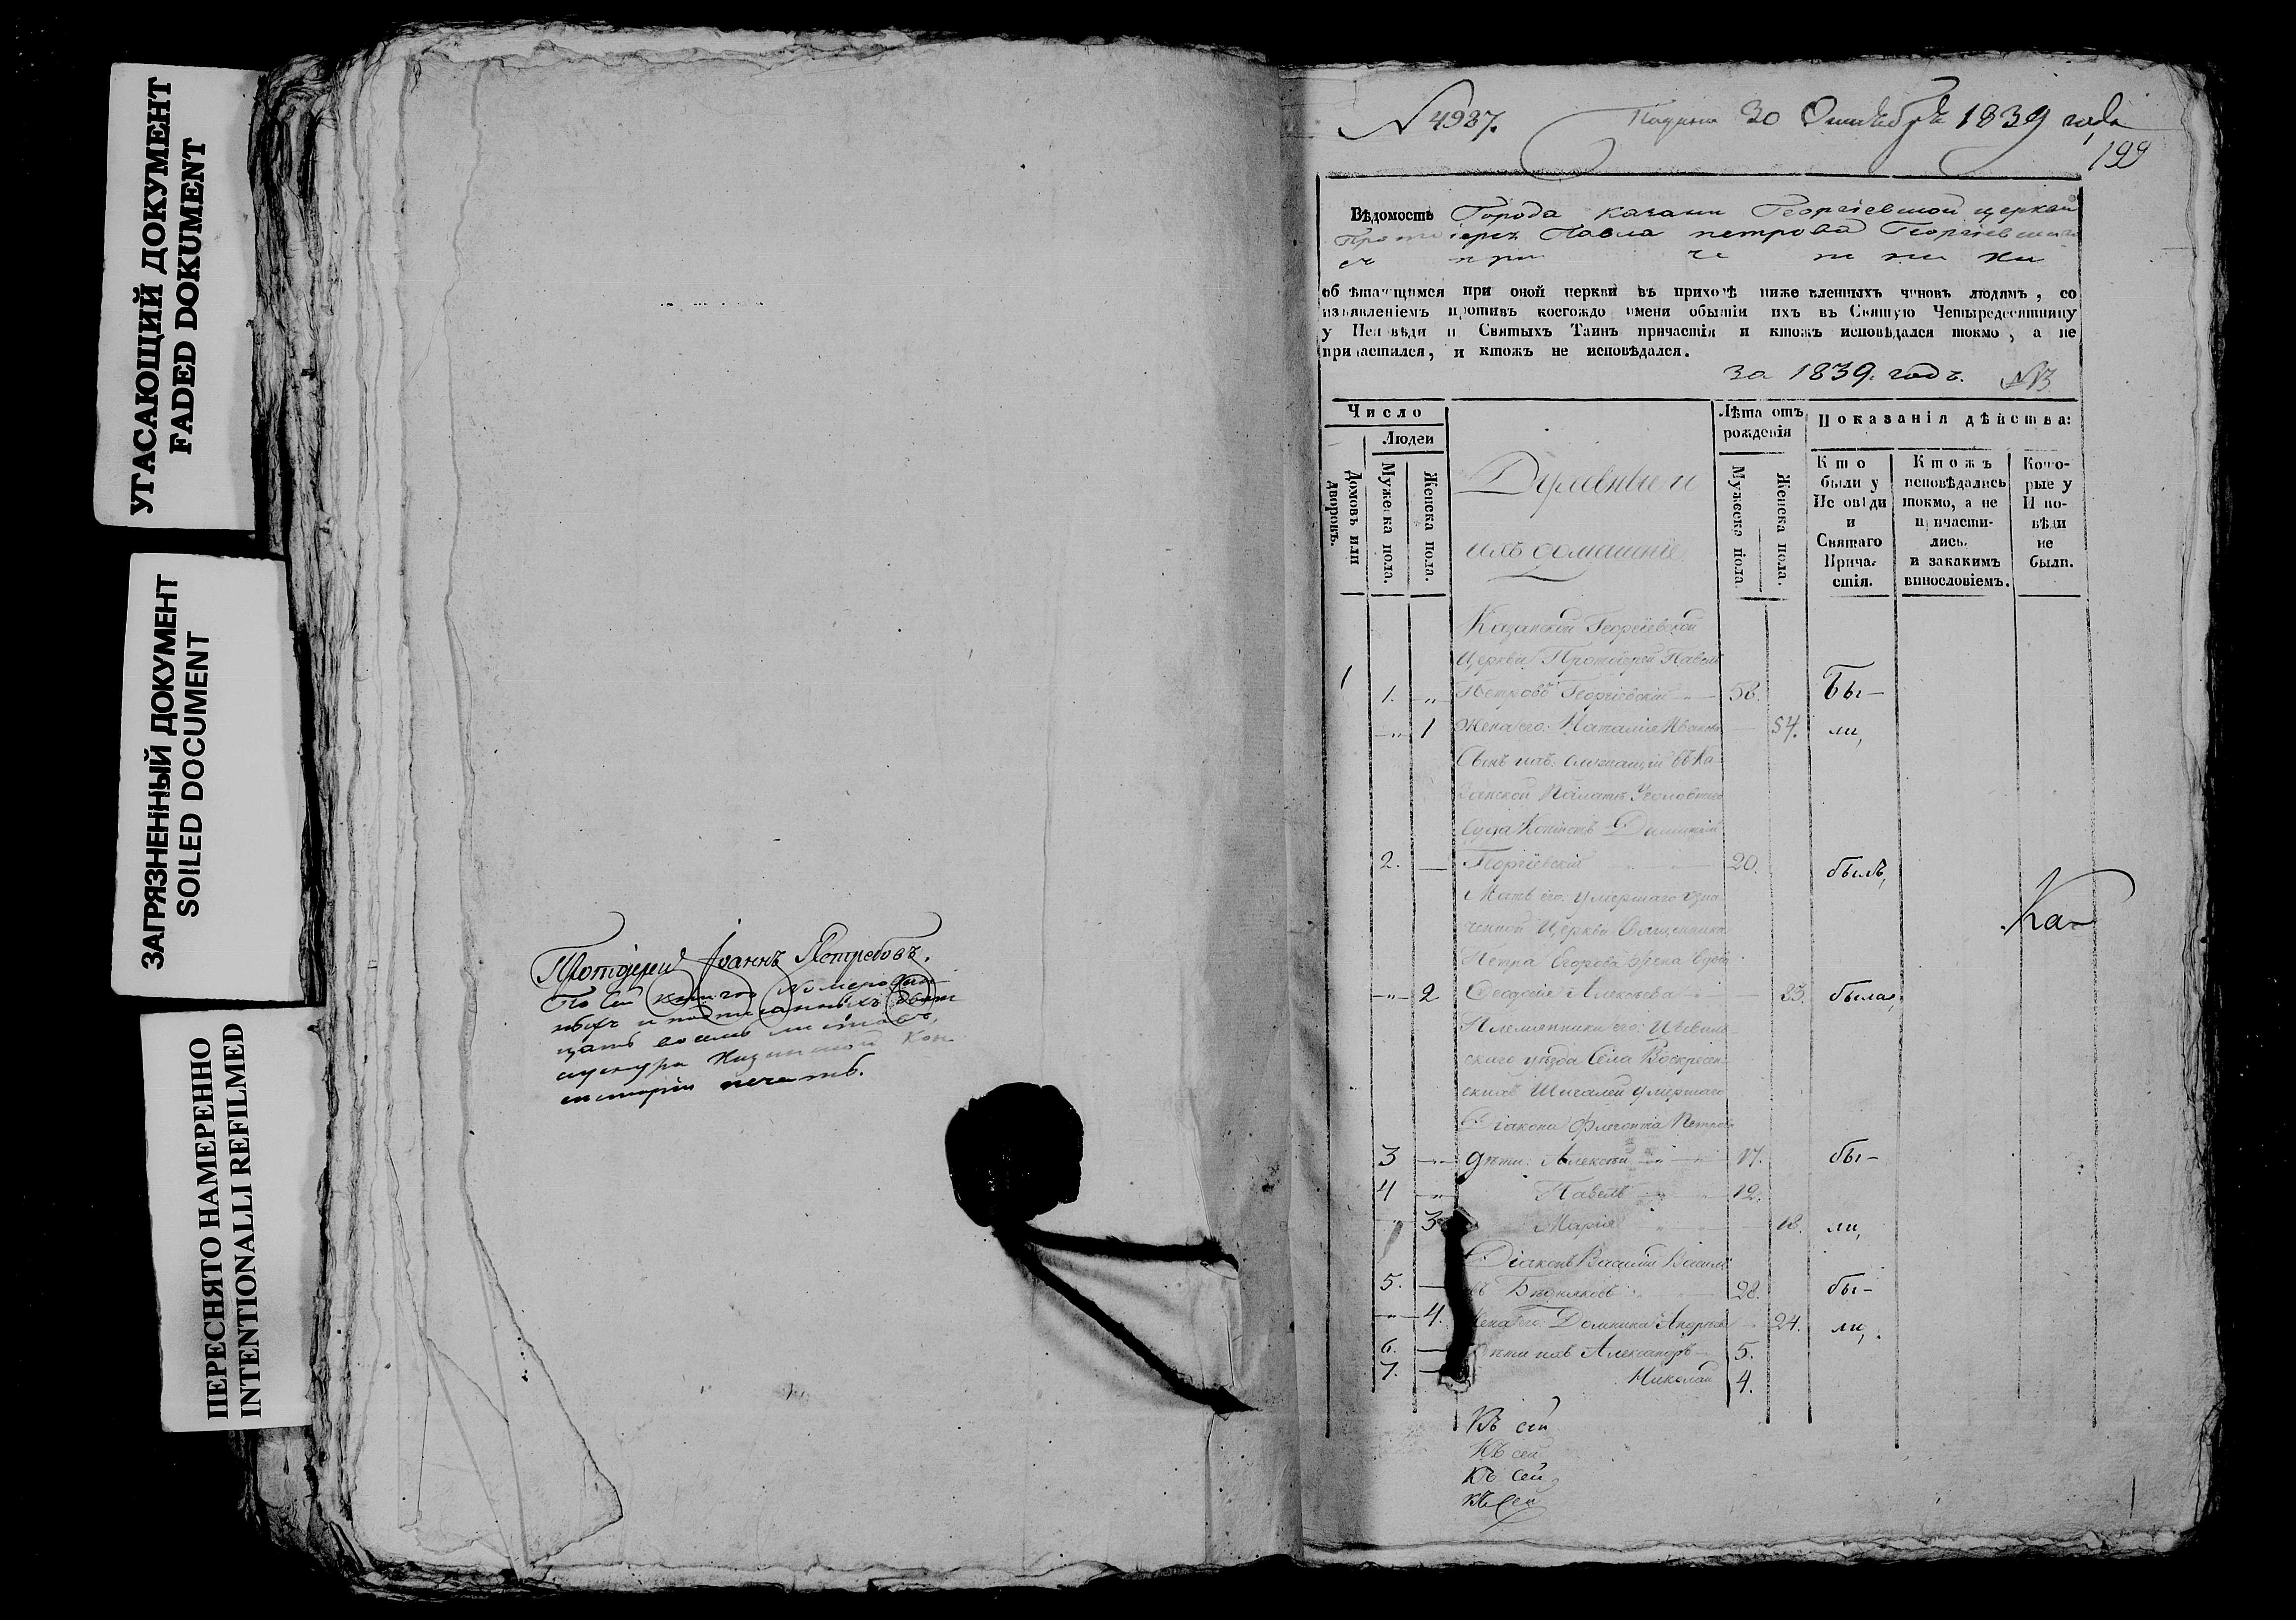 УГАСАЮЩИЙ ДОКУМЕНТ
FADED DOKUMENT
ЗАГРЯЗНЕННЫЙ ДОКУМЕНТ
SOILED DOCUMENT
ПЕРЕСНЯТО НАМЕРЕННО
INTENTIONALLI REFILMED
Протоіерей Іоаннъ Потребовъ.
По сей книгѣ
листовъ,
печать.
N 4987. 30 1839 года
199
Вѣдомость Города Казани Георгіевской церкви
Протоіерея Павла Петрова Георгіевскаго
съ при че т ни ки
обрѣтающимся при оной церкви въ приходѣ нижеявленныхъ чиновъ людямъ, со
изъявленіемъ противъ коегождо имени обытіи ихъ въ Святую Четыредесятницу
у Исповѣди и Святыхъ Таинъ причастія и ктожъ исповѣдался токмо, а не
причастился, и ктожъ не исповѣдался.
за 1839. годъ. N 3
Число
Людей
Домовъ или дворовъ.
Мужеска пола.
Женска пола.
Духовные и
ихъ домашніе
Лѣта отъ рожденія
Мужеска пола
Женска пола.
Показанія дѣйства:
Кто были у Исповѣди и Святаго Причастія.
Ктожъ исповѣдались токмо, а не причастились. и закакимъ винословіемъ.
Которые у Исповѣди не были.
Казанской Георгіевской
Церкви Протоіерей Павелъ
1 1. „ Петровъ Георгіевскій 58. Бы-
„ 1 Жена его: Наталія Иванова 54. ли,
Сынъ ихъ: служащій въ Ка-
занской Палатѣ Уголовнаго
Суда Копіистъ Димитрій
2. — Георгіевскій 20. былъ,
Мать его: умершаго озна-
ченной Церкви Священника
Петра Егорова жена вдова
Ка-
„ 2 Феодосія Алексѣева 83. была,
Племянники его: Цивиль-
скаго уѣзда Села Воскресен-
скихъ Шигалей умершаго
Діакона Флегонта Петрова
3 „ дѣти: Алексѣй 17. бы-
4 „ Павелъ 12.
„ 3 Марія 18. ли,
Діаконъ Василій Василь
5. — въ Бѣдняковъ 28. бы-
„ 4. Жена его: Домника Андреева 24. ли,
6. — Дѣти ихъ Александръ 5.
7. — Николай 4.
Къ сей
Къ сей
Къ сей
Къ сей